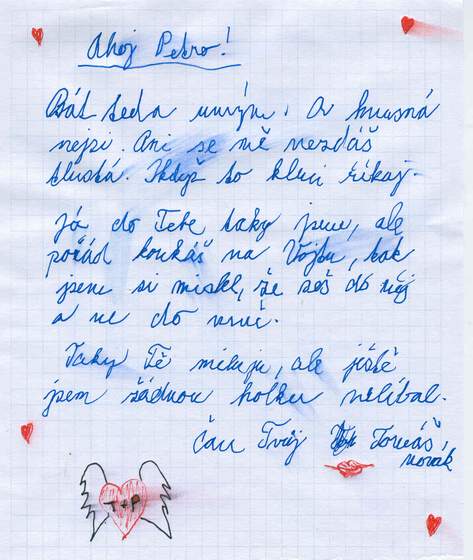 Ahoj Petro!
teda A hnusná
nejsi. Ani se mě nezdáš
tlustá. Ikdyž to kluci říkaj.
já do Tebe taky jsem, ale
pořád koukáš na Vojtu, tak
jsem si mislel, že seš do něj
a ne do mně.
Taky Tě miluju, ale ještě
jsem žádnou holku nelíbal.
Čau Tvůj Tomáš
Novák
T+P